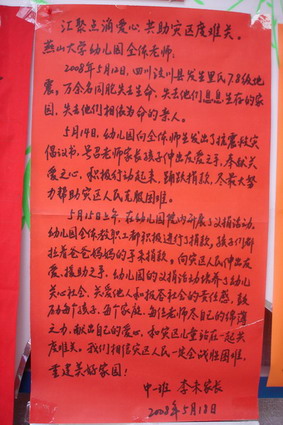 汇聚点滴爱心,共助灾区度难关。
燕山大学幼儿园全体老师:
2008年5月12日,四川汶川县发生里氏7.8级地
震,万余名同胞失去生命,失去他们息息生存的家
园,失去他们相依为命的亲人。
5月14日,幼儿园向全体师生发出了抗震救灾
倡议书,号召老师家长孩子伸出友爱之手,奉献关
爱之心,积极行动起来,踊跃捐款,尽最大努
力帮助灾区人民克服困难。
5月15日上午,在幼儿园院内开展了义捐活动,
幼儿园全体教职工都积极进行了捐款,孩子们都
拉着爸爸妈妈的手来捐款。向灾区人民伸出友
爱、援助之手,幼儿园的义捐活动培养了幼儿
关心社会、关爱他人和报答社会的责任感,鼓
励每个孩子,每个家庭,每位老师尽自己的绵薄
之力,献出自己的爱心,和灾区儿童站在一起共
度难关。我们相信灾区人民一定会战胜困难,
重建美好家园!
中一班 李未家长
2008年5月18日